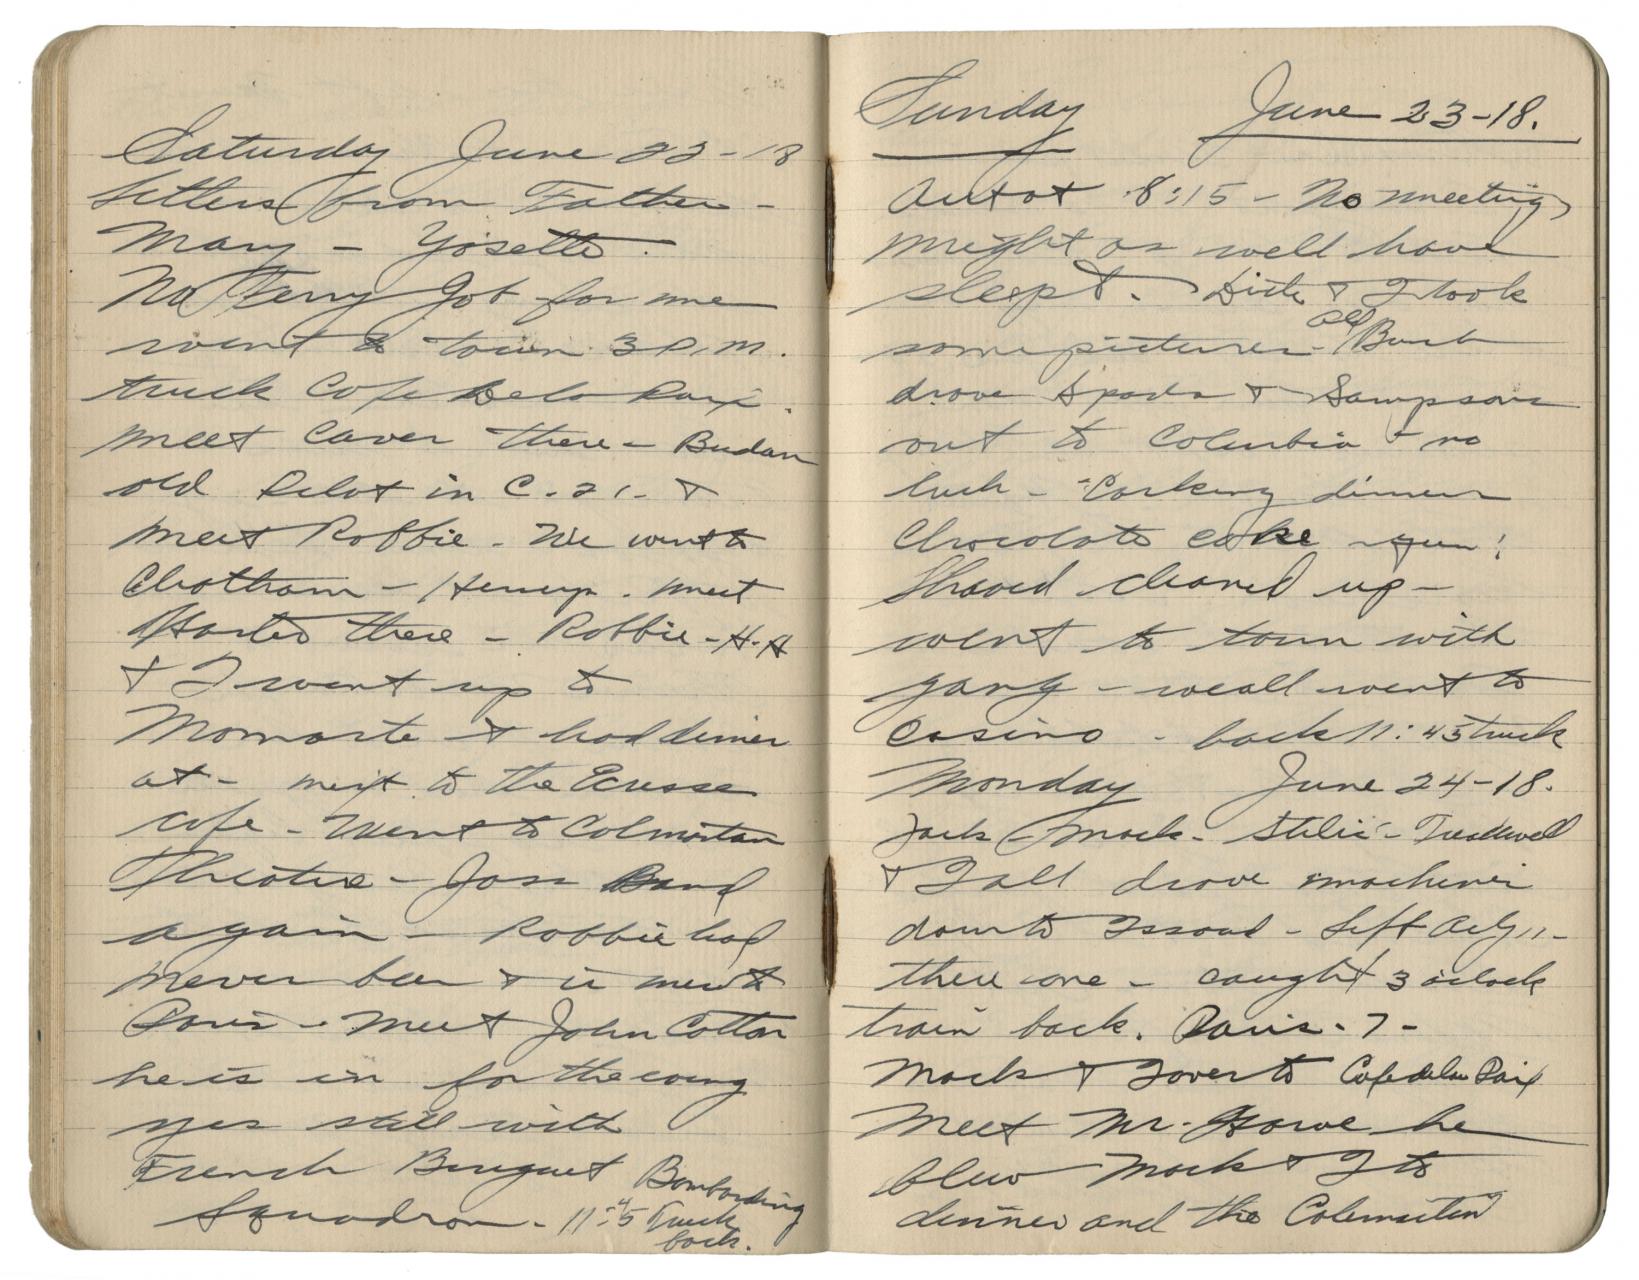 Saturday June 22-18
Letters from Father -
Mary - Yosette.
No Ferry Job for me
went to town 3 P.M.
truck Cafe De la Paix.
meet Caver there - Budan
old Pilot in C. 21. &
meet Robbie. We went to
Chatham - Henry. meet
there - Robbie - H.H
& I went up to
Momarte & had dinner
at - next to the Ecresse
cafe. Went to Colmartan
Theatre - Jass Band
again - Robbie had
never been & is new to
Paris - meet John Cotton
he is in for the
yes still with
French Breguet Bombarding
Squadron - 11:45 Truck
back.
Sunday June 23-18.
Out at 8:15 - No meeting
might as well have
slept. Dick & I took
some pictures - old Bush
drove Spads & Sampsons
out to Columbia & no
luck - Corking dinner
Chocolate cake again!
Shaved cleaned up -
went to town with
gang - we all went to
Casino - back 11:45 truck
Monday June 24-18.
Jack Mack - - Treadwell
& I all drove machines
down to Issoud - Left Orly 11 -
there one - caught 3 o'clock
train back. Paris - 7 -
Mack & I over to Cafe de la Paix
Meet Mr. Howe he
blew Mack & I to
dinner and the Colemarten